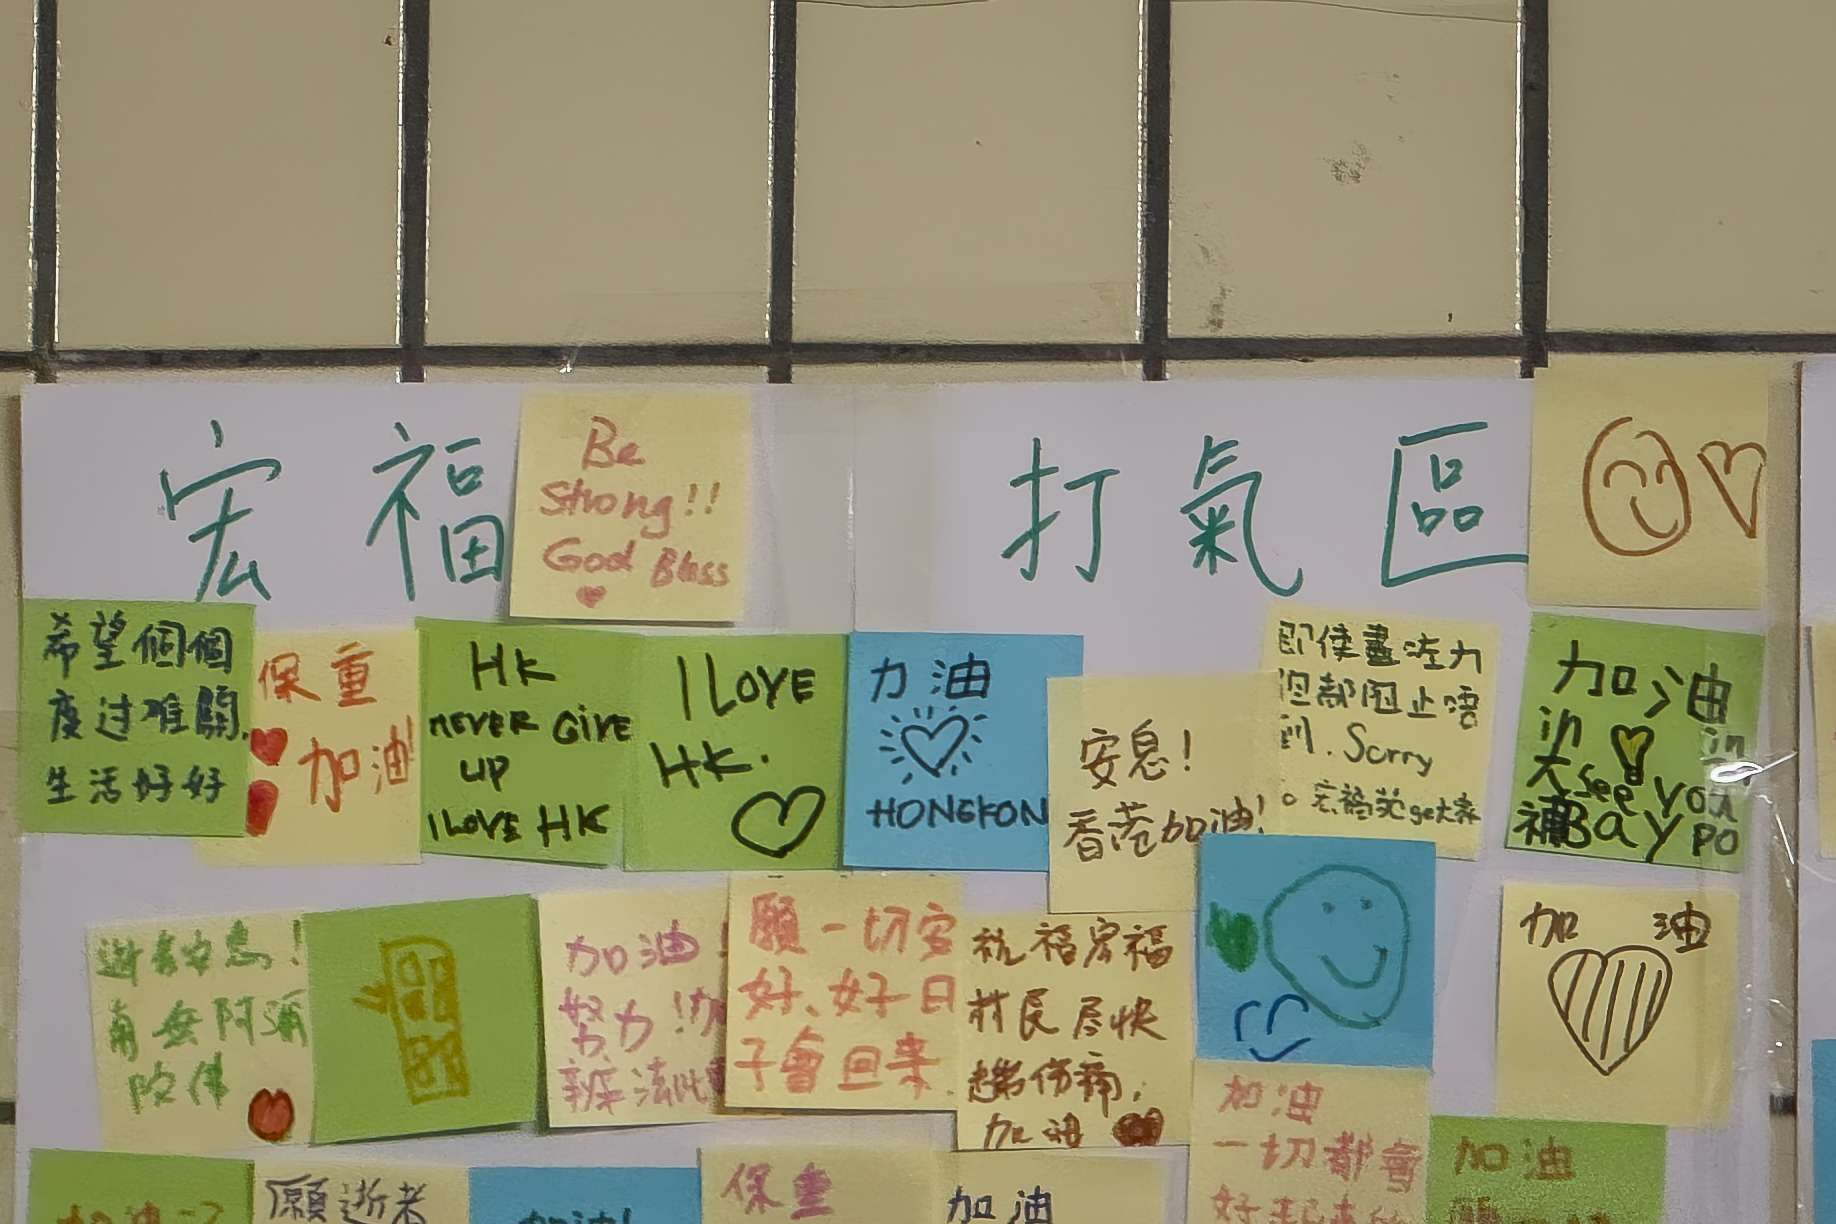 宏福
打氣區
Be
Strong!!
God Bless
希望個個
度过难關.
生活好好
保重
加油!
HK
NEVER GIVE
UP
I LOVE HK
I LOVE
HK.
力油
HONGKON
安息!
香港加油!
即使盡左力
但都阻止唔
到. Sorry
加油
in
see you
Bay
PO
逝者安息!
南無阿彌
陀佛
加油!
努力!
願一切安
好、好日
子會回来
祝福宏福
村民尽快
伤痛.
加油
加油
加油
一切都會
加油
願逝者
保重
加油
加油!